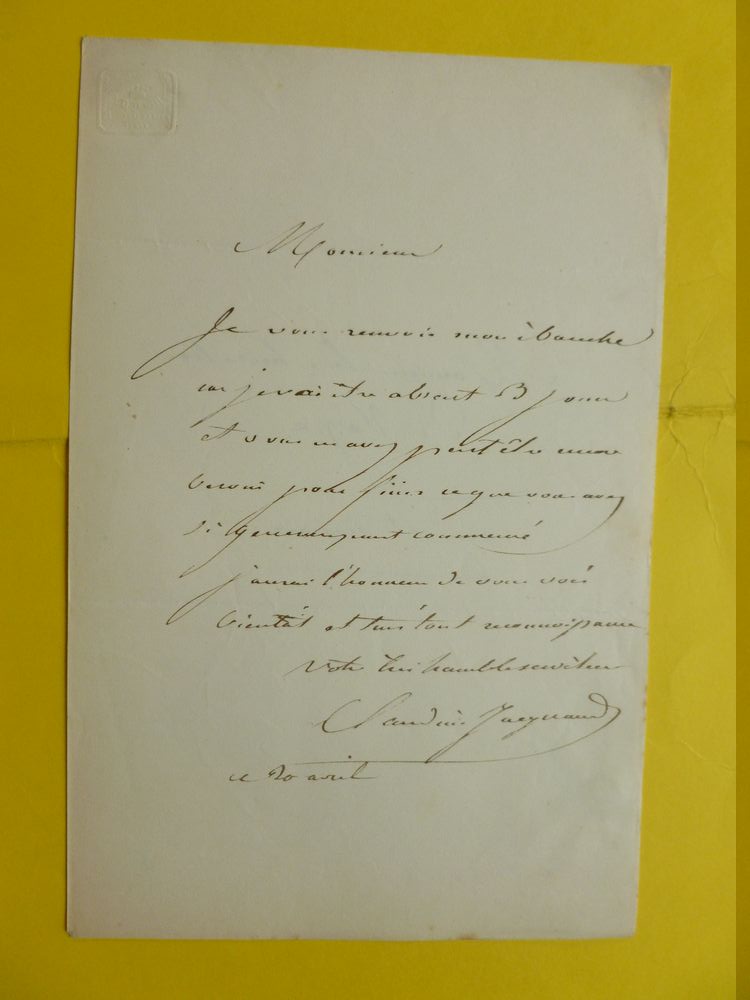 Monsieur
Je vous renvois mon ébauche
car je vais être absent 3 jours
et vous en avez peut être encore
besoin pour finir ce que vous avez
si genereusement commencé
j'aurai l'honneur de vous voir
bientôt et suis tout reconnoissance
Votre très humble serviteur
Claudius Jacquand
ce 20 avril